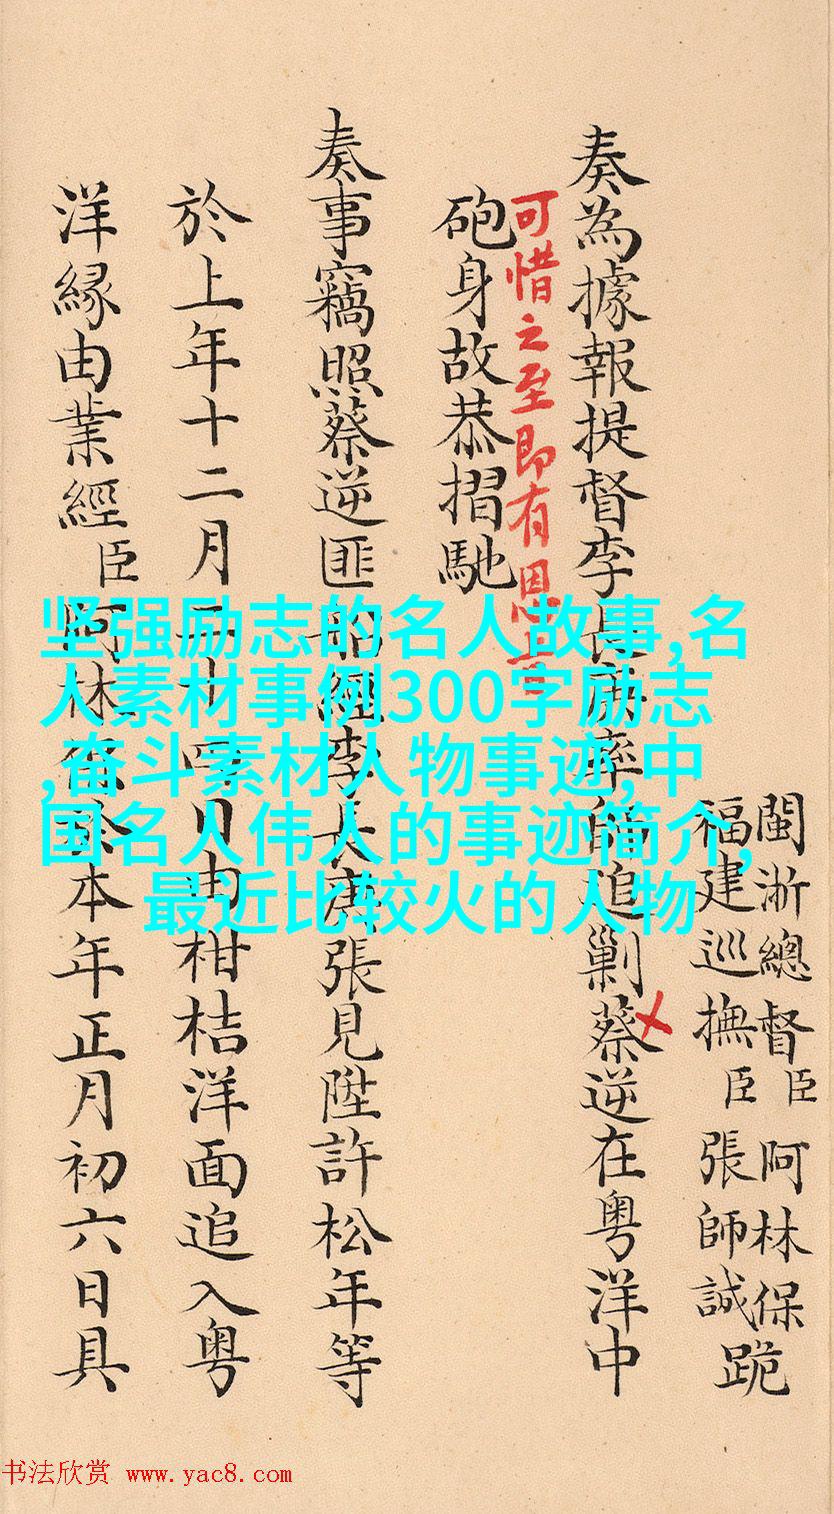 閩浙總督臣阿林保
福建巡撫臣張師誠
跪
奏為據報提督李長庚率師追剿蔡逆在粤洋中
可惜之至即有恩旨
砲身故恭摺馳
奏事竊照蔡逆匪船經李長庚張見陞許松年等
於上年十二月二十四日由柑桔洋面追入粤
洋緣由業經臣阿林保於本年正月初六日具
坚强励志的名人故事,名
人素材事例300字励志
,奋斗素材人物事迹,中
国名人伟人的事迹简介,
最近比较火的人物
书法欣赏 www.yac8.com